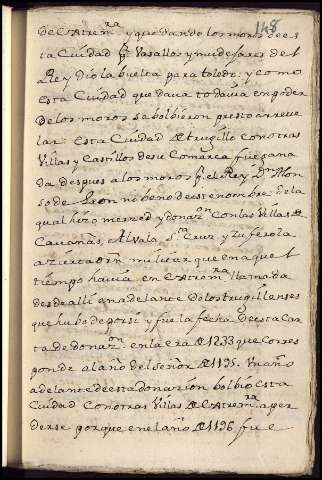 148
de Catrem.ra y quedando los moros de es
ta Ciudad p.r Vasallos y mudejares del
Rey dio la buelta para toledo: y como
esta Ciudad quedava todavia en poder
de los moros se bolbieron presto a reve
lar esta Ciudad de trugillo con otras
Villas y Castillos de su Comarca fue gana
da despues a los moros p.r el Rey D.n Alon
so de Leon nobeno de este nombre de la
qual hizo merced y donaz.on Con las Villas de
Cavañas, Alvala S.ta Cruz y zuferola
a zierta orn militar que en aquel
tiempo havia en Catrem.ra llamada
desde alli en adelante de los trugillenses
que hubo de por si y fue la fecha de esta Car
ta de donaz.on en la era de 1233 que corres
ponde al año del señor de 1195. Un año
adelante de esta donazion bolbio esta
Ciudad Con otras Villas de Catrem.ra a per
derse porque en el año de 1196 fue